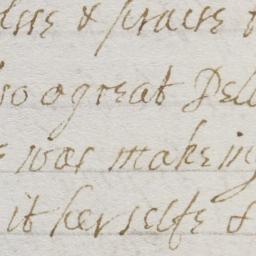 & praise
so a great Del
was makeing
it herselfe &